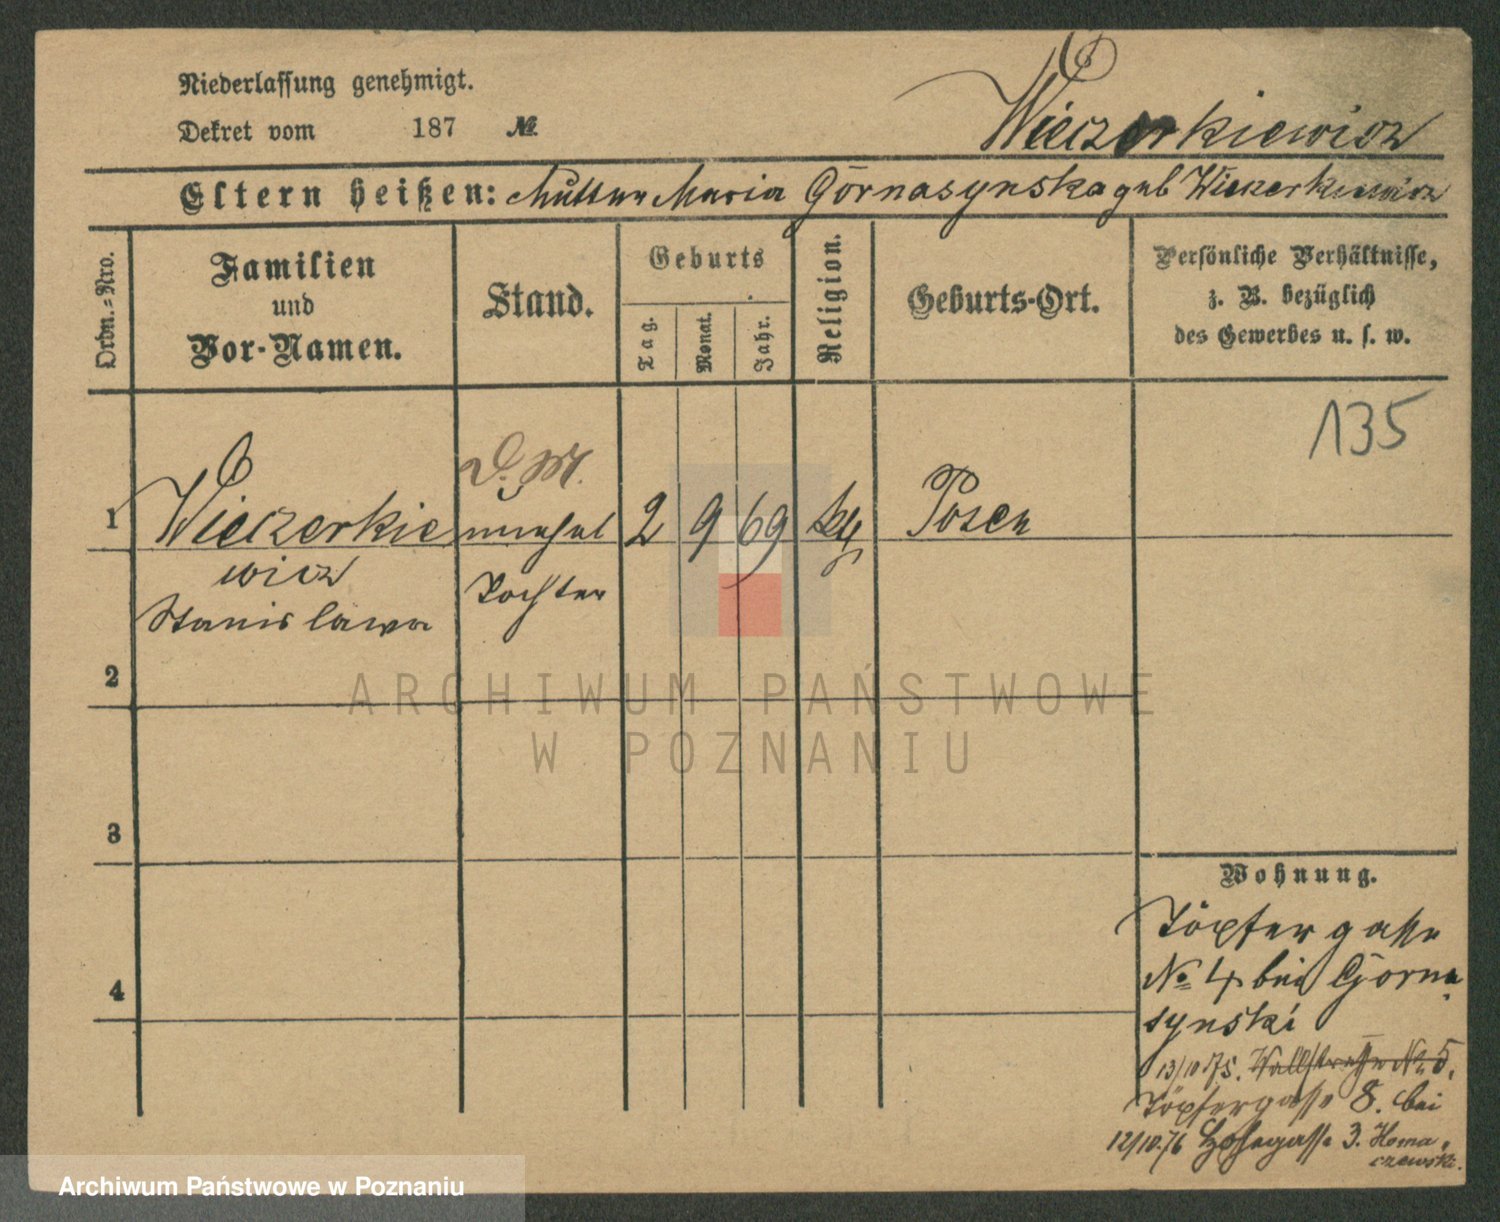 Niederlassung genehmigt.
Dekret vom 187 №
Wieczerkiewicz
Eltern heißen: Mutter Maria Górnasynska geb Wieczerkiewicz
Ordn.=Nro.
Familien
und
Vor-Namen.
Stand.
Geburts
Tag.
Monat.
Jahr.
Religion.
Geburts-Ort.
Persönliche Verhältnisse,
z. B. bezüglich
des Gewerbes u. s. w.
135
D. M.
1 Wieczerkie unehel 2 9 69 Posen
wicz
Tochter
Stanislawa
2
ARCHIWUM PAŃSTWOWE
W POZNANIU
3
Wohnung.
Töpfergasse
4
№ 4 bei Gorna
synski
13/10 75. Wallstrasse № 5.
Töpfergasse 8. bei
12/10.76 3.
Archiwum Państwowe w Poznaniu